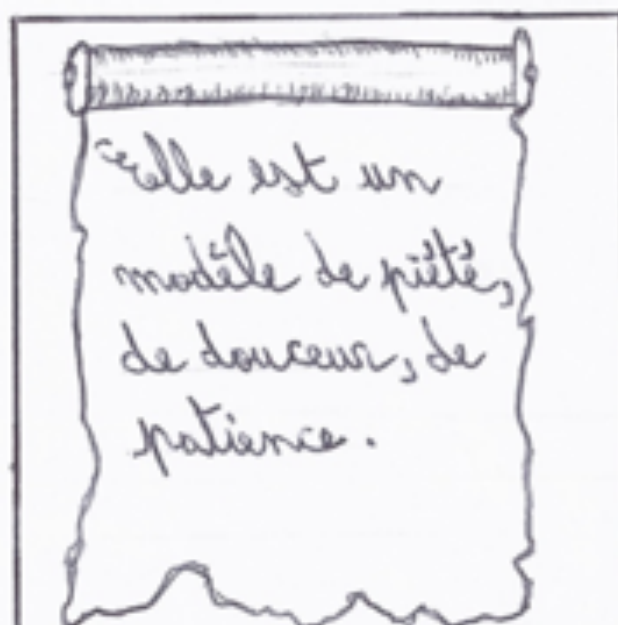 Elle est un
modèle de piété,
de douceur, de
patience.